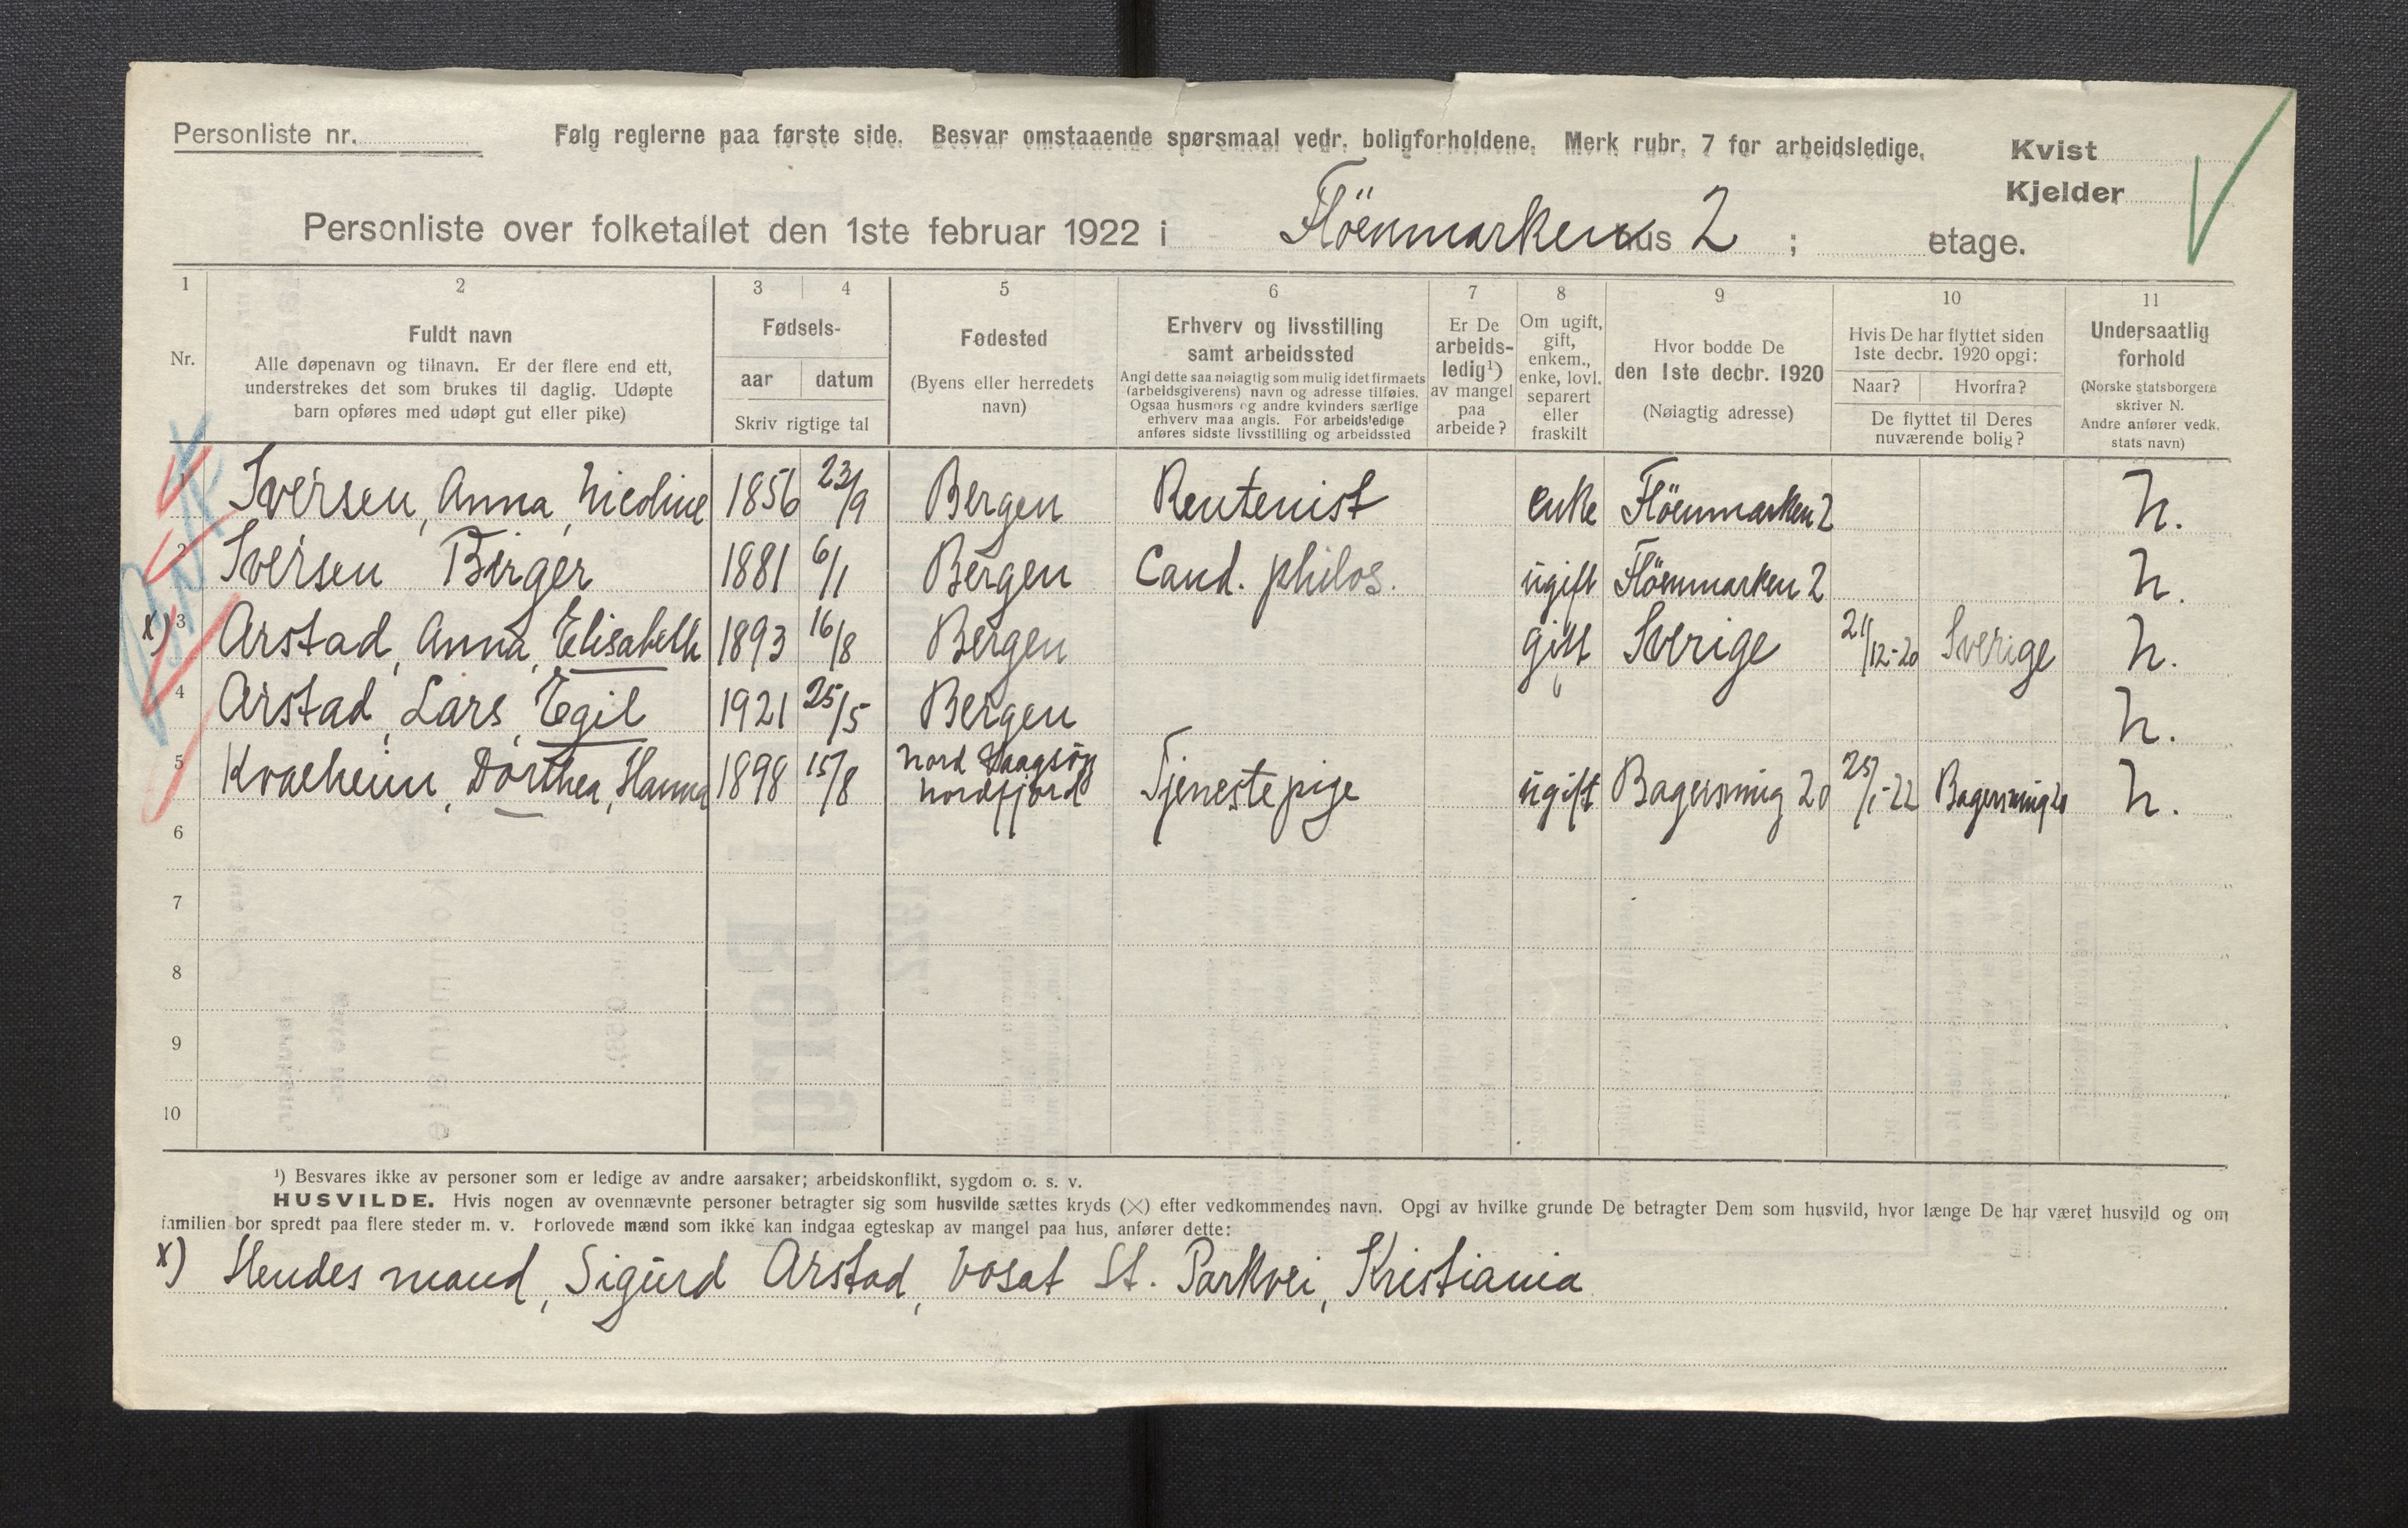 Personliste nr.
Følg reglerne paa første side. Besvar omstaaende spørsmaal vedr. boligforholdene. Merk rubr. 7 for arbeidsledige.
Kvist
Kjelder
Personliste over folketallet den 1ste februar 1922 i Flöenmarken hus 2 ; etage.
1 2 3 4 5 6 7 8 9 10 11
Nr.
Fuldt navn
Alle døpenavn og tilnavn. Er der flere end ett,
understrekes det som brukes til daglig. Udøpte
barn opføres med udøpt gut eller pike)
Fødsels-
aar datum
Skriv rigtige tal
Fødested
(Byens eller herredets
navn)
Erhverv og livsstilling
samt arbeidssted
Angi dette saa nøiagtig som mulig idet firmaets
(arbeidsgiverens) navn og adresse tilføies.
Ogsaa husmors og andre kvinders særlige
erhverv maa angis. For arbeidsledige
anføres sidste livsstilling og arbeidssted
Er De
arbeids-
ledig¹)
av mangel
paa
arbeide?
Om ugift,
gift,
enkem.,
enke, lovl.
separert
eller
fraskilt
Hvor bodde De
den 1ste decbr. 1920
(Nøiagtig adresse)
Hvis De har flyttet siden
1ste decbr. 1920 opgi:
Naar? Hvorfra?
De flyttet til Deres
nuværende bolig?
Undersaatlig
forhold
(Norske statsborgere
skriver N.
Andre anfører vedk.
stats navn)
1 Iversen, Anna, Nicoline 1856 23/9 Bergen Rentenist enke Flöenmarken 2 N.
2 Iversen Birger 1881 6/1 Bergen Cand. philos. ugift Flöenmarken 2 N.
x) 3 Arstad, Anna, Elisabeth 1893 16/8 Bergen gift Sverige 21/12-20 Sverige N.
4 Arstad, Lars, Egil 1921 25/5 Bergen N.
5 Kvalheim, Dorthea, Hanna 1898 15/8 Nord Vaagsöy Nordfjord Tjenestepige ugift 20 25/1-22 N.
6
7
8
9
10
¹) Besvares ikke av personer som er ledige av andre aarsaker; arbeidskonflikt, sygdom o. s. v.
HUSVILDE. Hvis nogen av ovennævnte personer betragter sig som husvilde sættes kryds (×) efter vedkommendes navn. Opgi av hvilke grunde De betragter Dem som husvild, hvor længe De har været husvild og om
familien bor spredt paa flere steder m. v. Forlovede mænd som ikke kan indgaa egteskap av mangel paa hus, anfører dette:
x) Hendes mand, Sigurd Arstad, bosat St. Parkvei, Kristiania